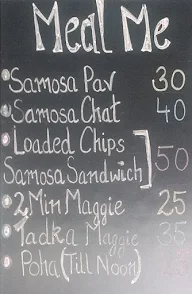 Meal Me
Samosa Pav 30
Samosa Chat 40
Loaded Chips
Samosa Sandwich 50
2 Min Maggie 25
Tadka Maggie 35
Poha (Till Noon)